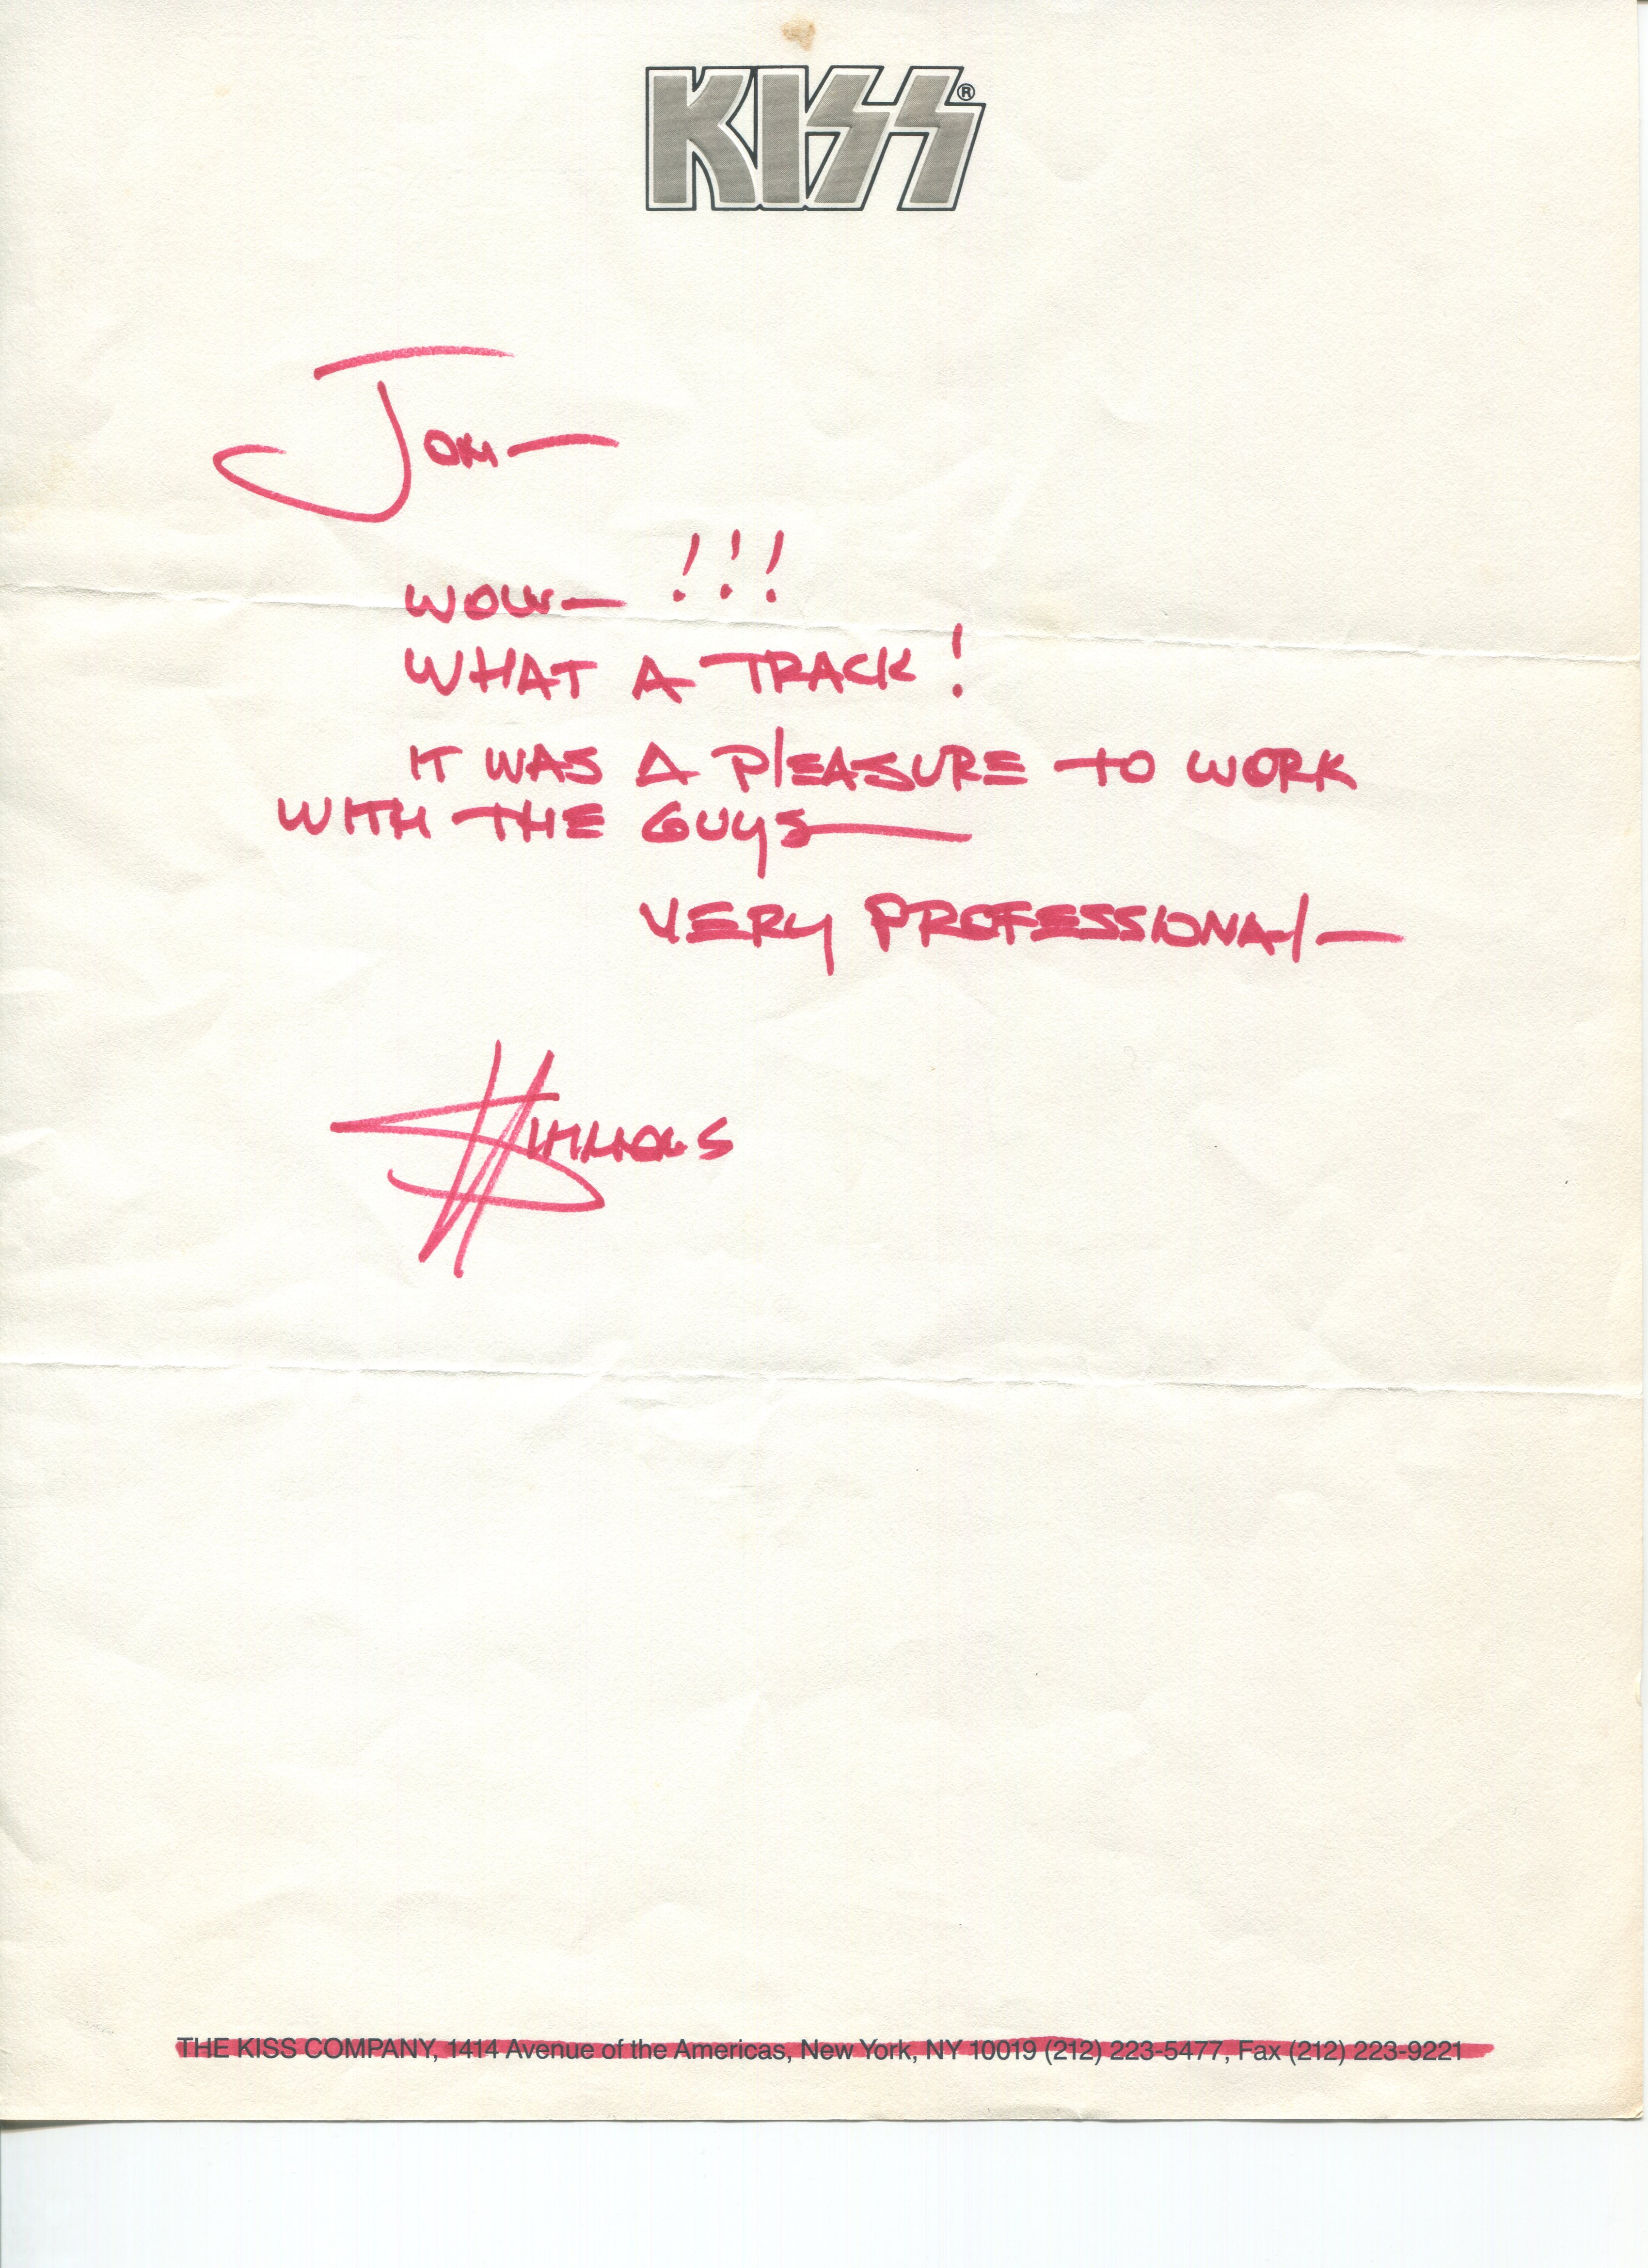 KISS®
Jon—
WOW— !!!
WHAT A TRACK!
IT WAS A PlEASURE TO WORK
WITH THE GUYS—
VERY PROFESSIONAl—
SIMMONS
THE KISS COMPANY, 1414 Avenue of the Americas, New York, NY 10019 (212) 223-5477, Fax (212) 223-9221